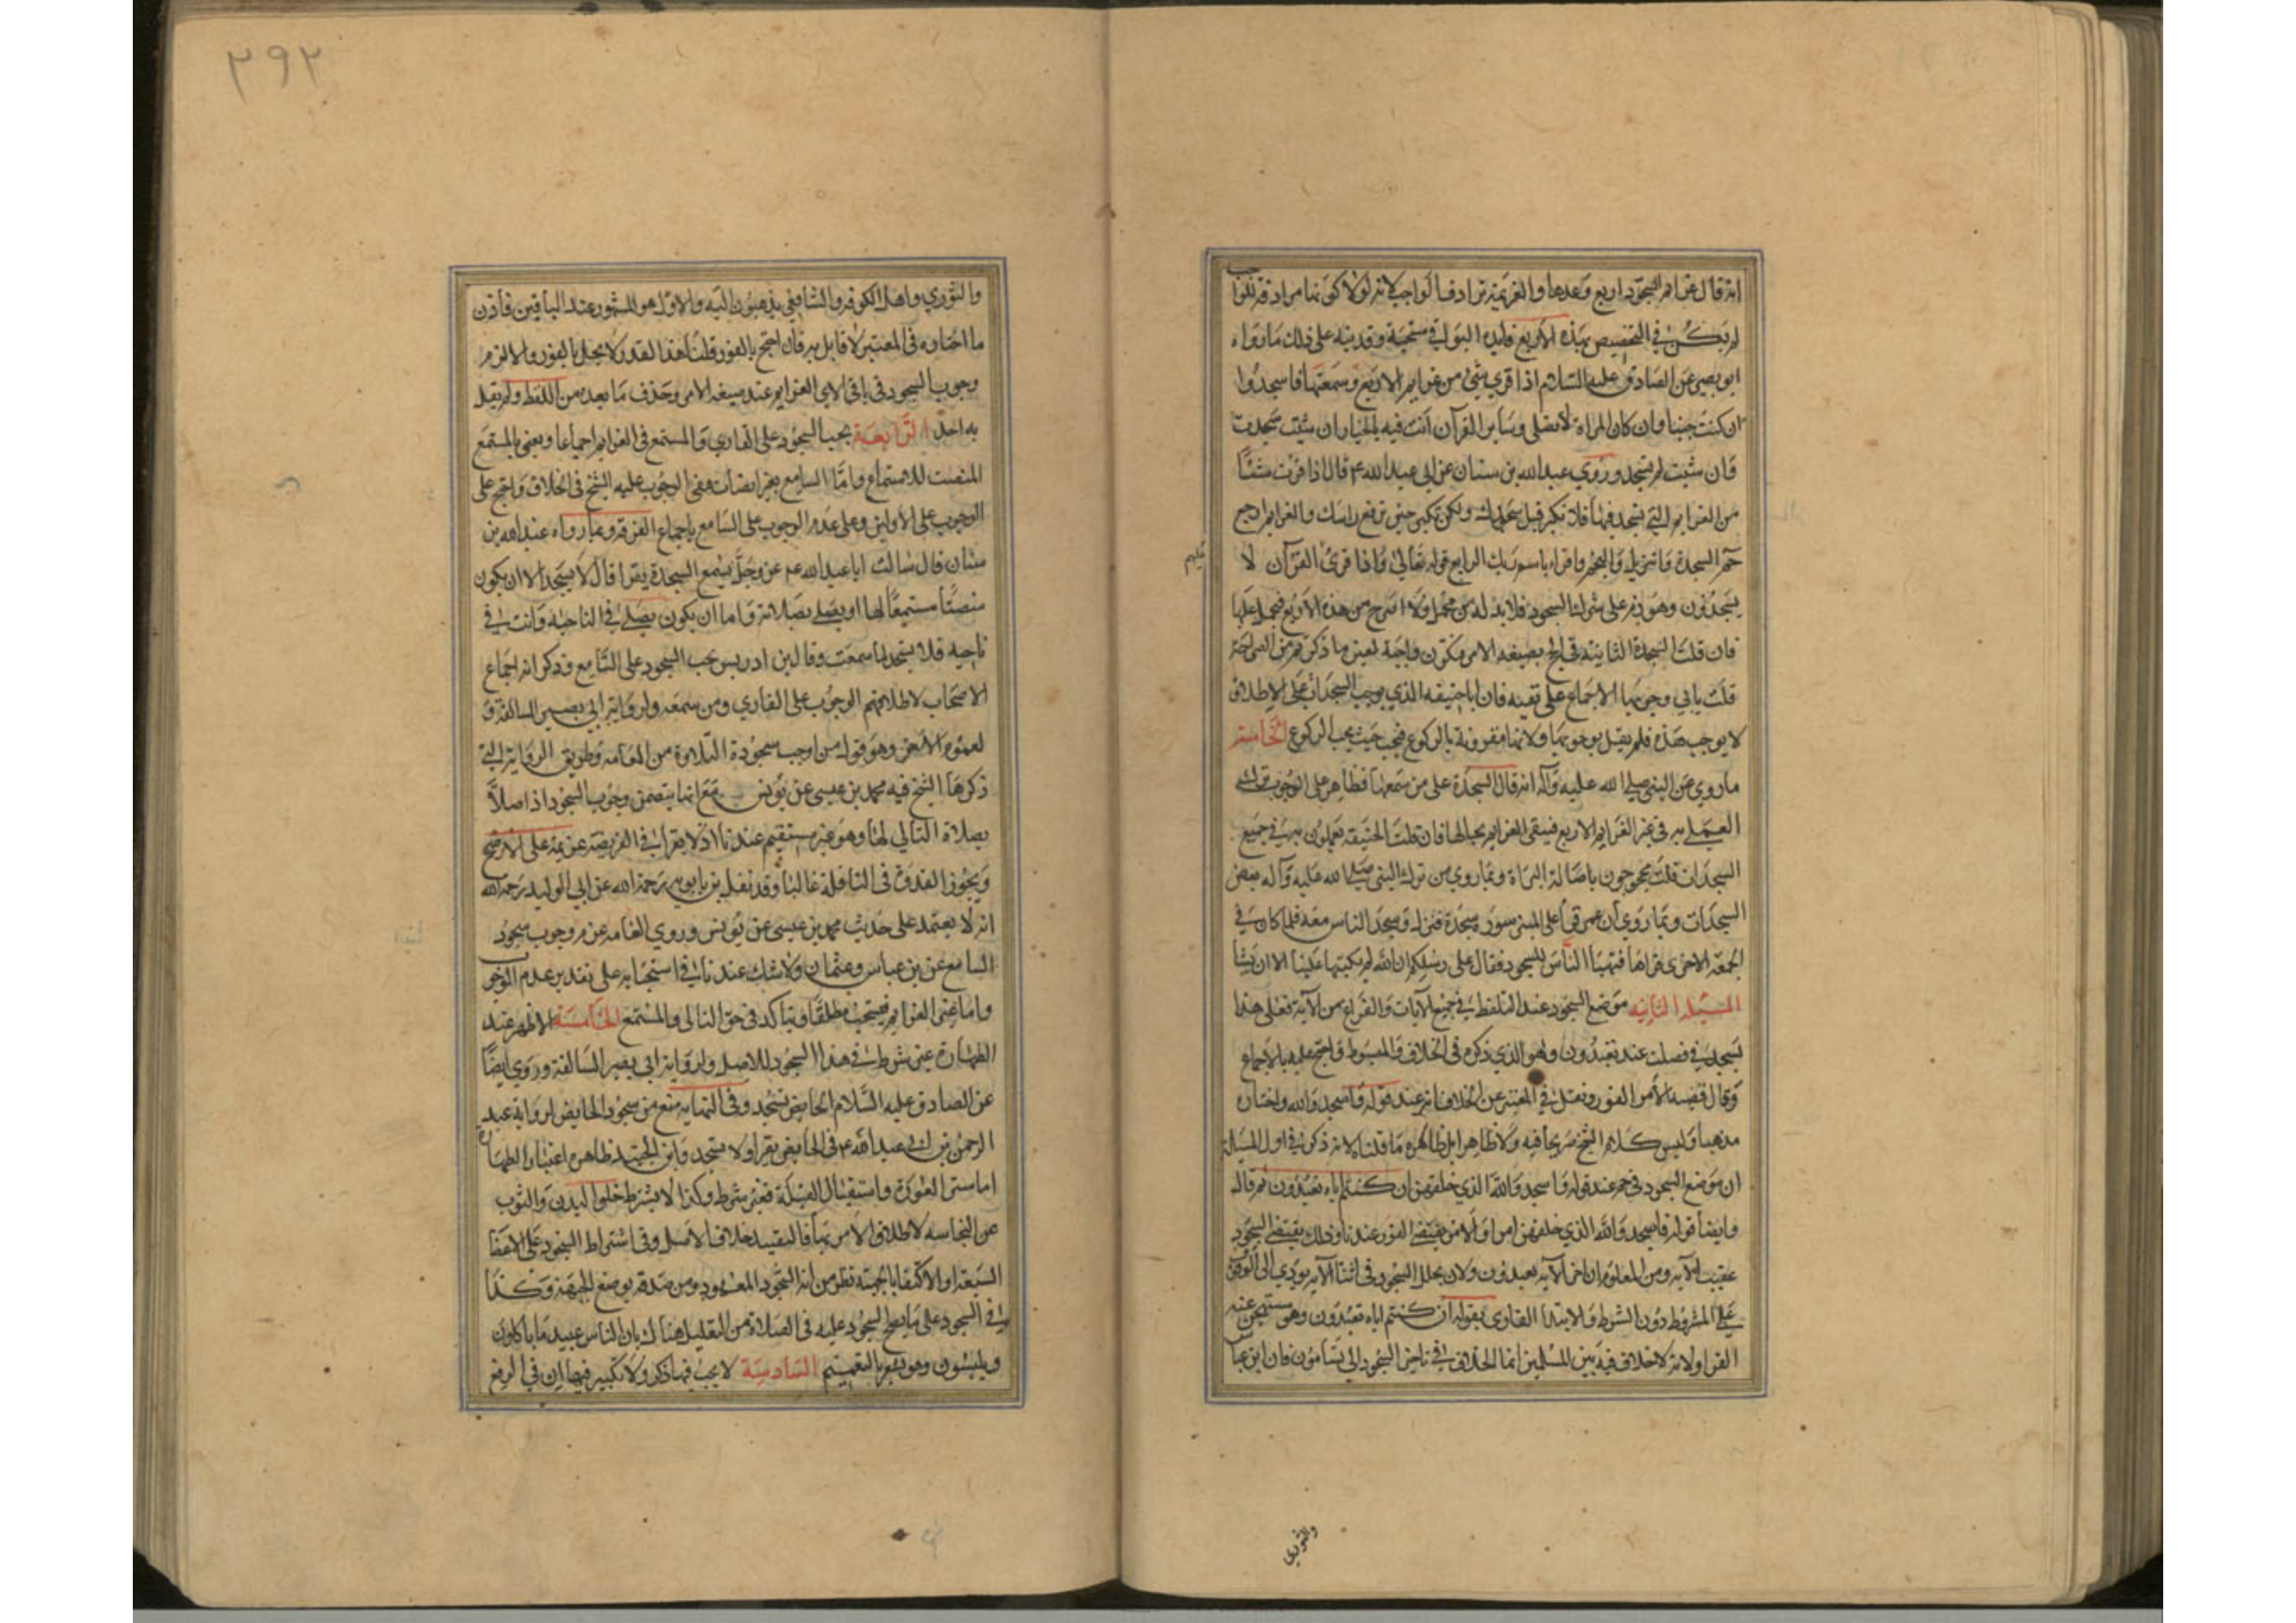 انه قال عزايم السجود اربع وعدها والعزيمة ترادف الواجب لانه لولا كونها مرادفة للواجب
لم يكن في التخصيص بهذه الاربع فايدة اذ البواقي مستحبة وقد نبه على ذلك ما رواه
ابو بصير عن الصادق عليه السلام اذا قري شي من عزايم الاربع وسمعتها فاسجد وا
ان كنت جنبا وان كان المراة لا تصلى وساير القرآن انت فيه بالخيار ان شيت سجدت
وان شيت لم تسجد وروي عبد الله بن سنان عن ابي عبد الله ع قال اذا قرات شيئا
من العزايم التي يسجد فيها فلا تكبر قبل سجودك ولكن تكبر حين ترفع راسك والعزايم اربع
حم السجدة وتنزيل والنجم واقراء باسم ربك الرابع قوله تعالى واذا قرئ القرآن لا
عليهم
يسجدون وهو ذم على ترك السجود فلا بد له من محمل ولا اصرح من هذه الاربع فيحمل عليها
فان قلت السجدة الثانية في الحج بصيغه الامر فتكون واجبة لعين ما ذكرتم من الصراحة
قلت يابي وجوبها الاجماع على نفيه فان ابا حنيفه الذي يوجب السجدات على الاطلاق
لا يوجب هذه فلم يقل بوجوبها ولانها مقرونة بالركوع فيجب حيث يجب الركوع الخامس
ما روي عن النبي صلى الله عليه وآله انه قال السجدة على من سمعها فظاهر على الوجوب ترك
العمل به في غير العزايم الاربع فيبقى العزايم بحالها فان قلت الحنيفه يعملون به في جميع
السجدات قلت محجوجون باصالة البراة وبما روي من ترك النبي صلى الله عليه وآله بعض
السجدات وبما روي ان عمر قرا على المنبر سورة سجدة فنزل وسجد الناس معه فلما كان في
الجمعة الاخرى قراها فتهيا الناس للسجود فقال على رسلكم ان الله لم يكتبها علينا الا ان نشا
المسئلة الثانيه موضع السجود عند التلفظ في جميع الآيات والفراغ من الآية فعلى هذا
يسجد في فصلت عند تعبدون وهو الذي ذكره في الخلاف والمبسوط واحتج عليه بالاجماع
وقال قضيه الامر الفور ونقل في المعتبر عن الخلاف انه عند قوله واسجدوا لله واختاره
مذهبا وليس كلام الشيخ صريحا فيه ولا ظاهرا بل ظاهره ما قلناه لانه ذكر في اول المسالة
ان موضع السجود في حم عند قوله واسجدوا لله الذي خلقهن ان كنتم اياه تعبدون ثم قال
وايضا قوله واسجدوا لله الذي خلقهن امر والامر يقتضي الفور عندنا وذلك يقتضي السجود
عقيب الآية ومن المعلوم ان آخر الآية تعبدون ولان تخلل السجود في اثنا الآية يودي الى الوقف
على المشروط دون الشرط والابتدا القارى بقوله ان كنتم اياه تعبدون وهو مستهجن عند
القرا ولانه لا خلاف فيه بين المسلمين انما الخلاف في تاخير السجود الى يسامون فان ابن عباس
والثوري
٣٩٢
والثوري واهل الكوفه والشافعي يذهبون اليه والاول هو المشهور عند الباقين فاذن
ما اختاره في المعتبر لا قايل به فان احتج بالفور قلنا هذا القدر لا يخل بالفور والا لزم
وجوب السجود في باقي الآي العزايم عند صيغه الامر وحذف ما بعده من اللفظ ولم يقل
به احد الرابعة يجب السجود على القاري والمستمع في العزايم اجماعا ويعني بالمستمع
المنصت للاستماع واما السامع بغير انصات ففي الوجوب عليه الشيخ في الخلاف واحتج على
الوجوب على الاولين وعلى عدم الوجوب على السامع باجماع الفرقه وبما رواه عبد الله بن
سنان قال سالت ابا عبد الله ع عن رجل سمع السجدة يقرا قال لا يسجد الا ان يكون
منصتا مستمعا لها او يصلي بصلاته واما ان يكون يصلي في الناحية وانت في
ناحيه فلا يسجد لما سمعت وقال ابن ادريس يجب السجود على السامع وذكر انه اجماع
الاصحاب لاطلاقهم الوجوب على القاري ومن سمعه ولرواية ابي بصير السالفة و
لعموم الآخر وهو قول من اوجب سجودة التلاوة من العامة وطريق الرواية التي
ذكرها الشيخ فيه محمد بن عيسى عن يونس مع انها يتضمن وجوب السجود اذا صلا
بصلاة التالي لها وهو غير مستقيم عندنا اذ لا يقرا في الفريضة عزيمة على الاصح
ويجوز القدوة في النافلة غالبا وقد نقل بن بابويه رحمة الله عن ابي الوليد رحمه الله
انه لا يعتمد على حديث محمد بن عيسى عن يونس وروي العامه عدم وجوب سجود
السامع عن بن عباس وعثمان ولا شك عندنا في استحبابه على تقدير عدم الوجوب
واما غير العزايم فيستحب مطلقا ويتاكد في حق التالي والمستمع الخامسة الاظهر عند
الطهارة غير شرط في هذا السجود للاصل ولرواية ابي بصير السالفة وروي ايضا
عن الصادق عليه السلام الحايض تسجد وفي النهايه منع من سجود الحايض لرواية عبد
الرحمن عن ابي عبد الله ع في الحايض يقرا ولا يسجد وابن الجنيد ظاهره اعتبار الطهارة
اما ستر العورة واستقبال القبلة فغير شرط وكذا لا يشترط خلو البدن والثوب
عن النجاسه لاطلاق الامر بها فالتقييد خلاف الاصل وفي اشتراط السجود على الاعضا
السبعة او الاكتفا بالجبهة نظر من انه السجود المعهود ومن صدقه بوضع الجبهة وكذا
في السجود على ما يصح السجود عليه في الصلاة من التعليل هناك بان الناس عبيد ما ياكلون
ويلبسون وهو يشعر بالتعميم السادسة لا يجب فيها ذكر ولا تكبير فيها الا في الرفع